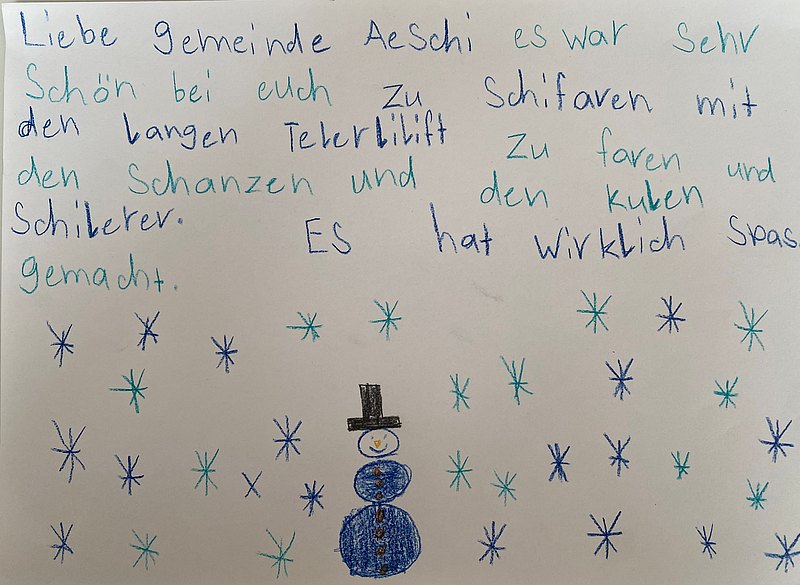 Liebe gemeinde Aeschi es war sehr
Schön bei euch zu Schifaren mit
den langen Telerlilift zu faren und
den Schanzen und den kulen
Schilerer. Es hat wirklich Spas
gemacht.